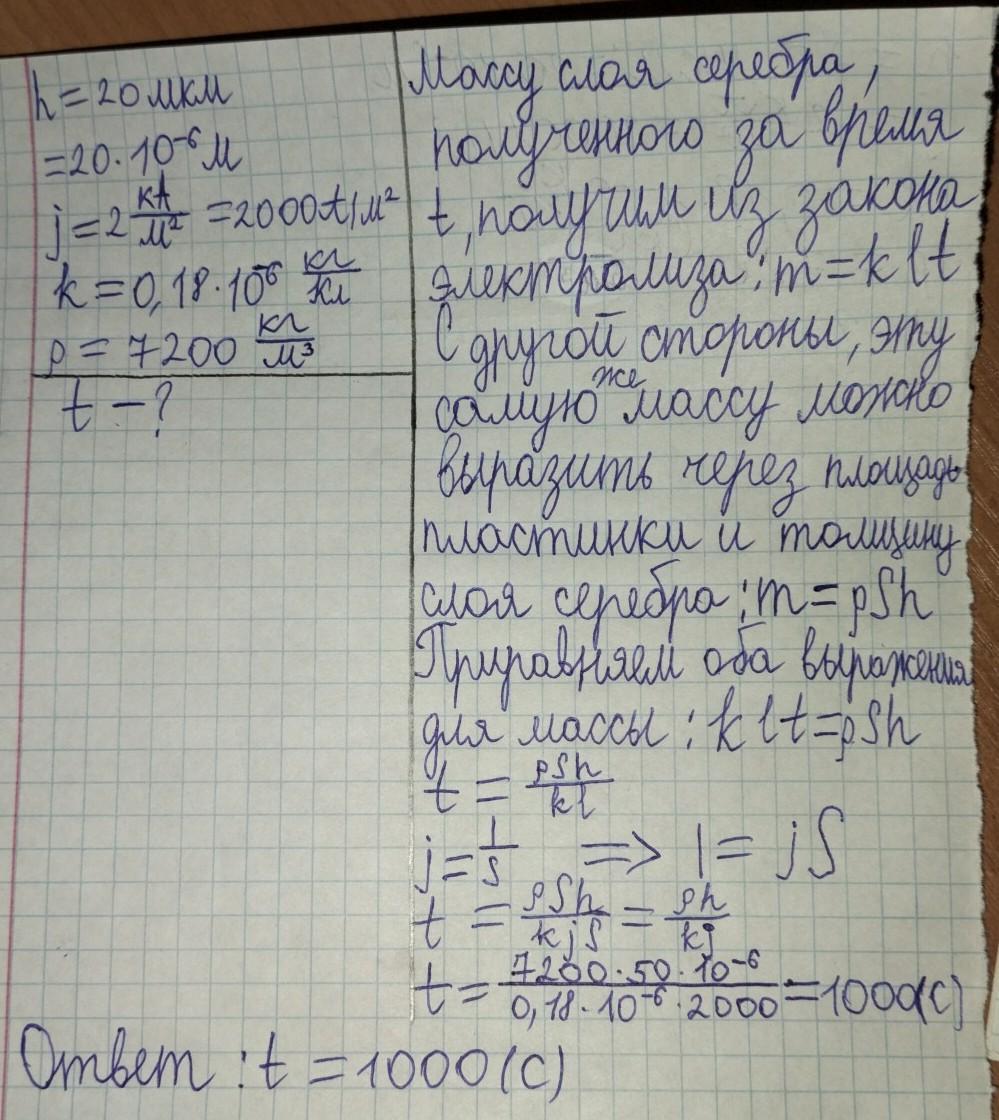 h = 20 мкм
= 20 · 10⁻⁶ м
j = 2 кА/м² = 2000 А/м²
k = 0,18 · 10⁻⁶ кг/Кл
ρ = 7200 кг/м³
t – ?
Массу слоя серебра,
полученного за время
t, получим из закона
электролиза: m = k I t
С другой стороны, эту
самую же массу можно
выразить через площадь
пластинки и толщину
слоя серебра: m = ρSh
Приравняем оба выражения
для массы: k I t = ρSh
t = ρSh/kI
j = I/S => I = jS
t = ρSh/kjS = ρh/kj
t = 7200 · 50 · 10⁻⁶/0,18 · 10⁻⁶ · 2000 = 1000(с)
Ответ: t = 1000 (с)